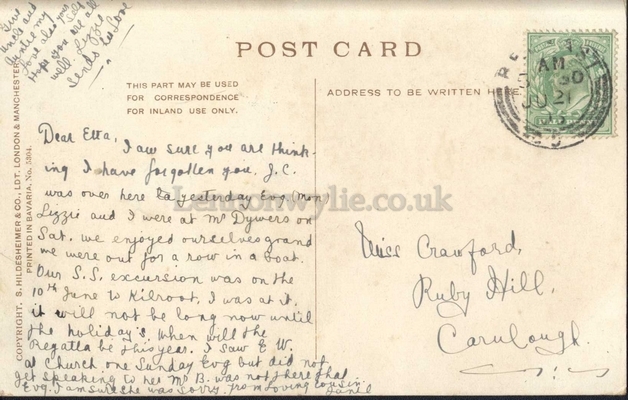 Give
Uncle and
Auntie my
love also Mrs
Hope you are all
well. Lizzie
Sends her Love
POST CARD
THIS PART MAY BE USED
FOR CORRESPONDENCE
FOR INLAND USE ONLY.
ADDRESS TO BE WRITTEN HERE.
COPYRIGHT. S. HILDESHEIMER & CO., LDT. LONDON & MANCHESTER
PRINTED IN BAVARIA. No. 5304.
AM
30
JU 21
Dear Etta,
I am sure you are think-
ing I have forgotten you. J.C.
was over here yesterday Evg (Mon)
Lizzie and I were at Mr Dywers on
Sat. we enjoyed ourselves grand
we were out for a row in a boat.
Our S.S. excursion was on the
10th June to Kilroot, I was at it,
it will not be long now until
the holiday's, When will the
Regatta be this year. I saw E W.
at Church one Sunday Evg but did not
get speaking to her Mr B. was not there that
Evg. I am sure she was sorry. from loving cousin
Miss Crawford,
Ruby Hill,
Carnlough.
Lennonwylie.co.uk